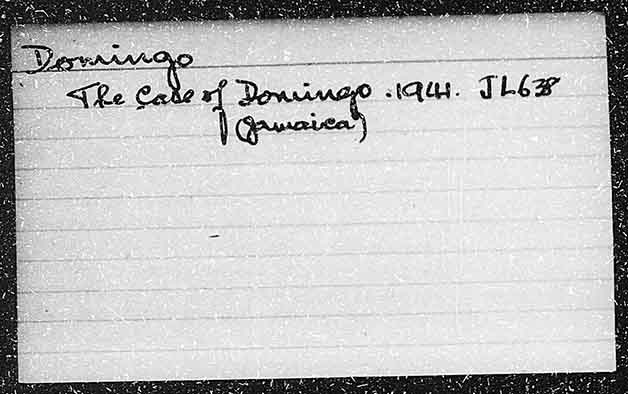 Domingo
The Case of Domingo. 1941. JL638
(Jamaica)